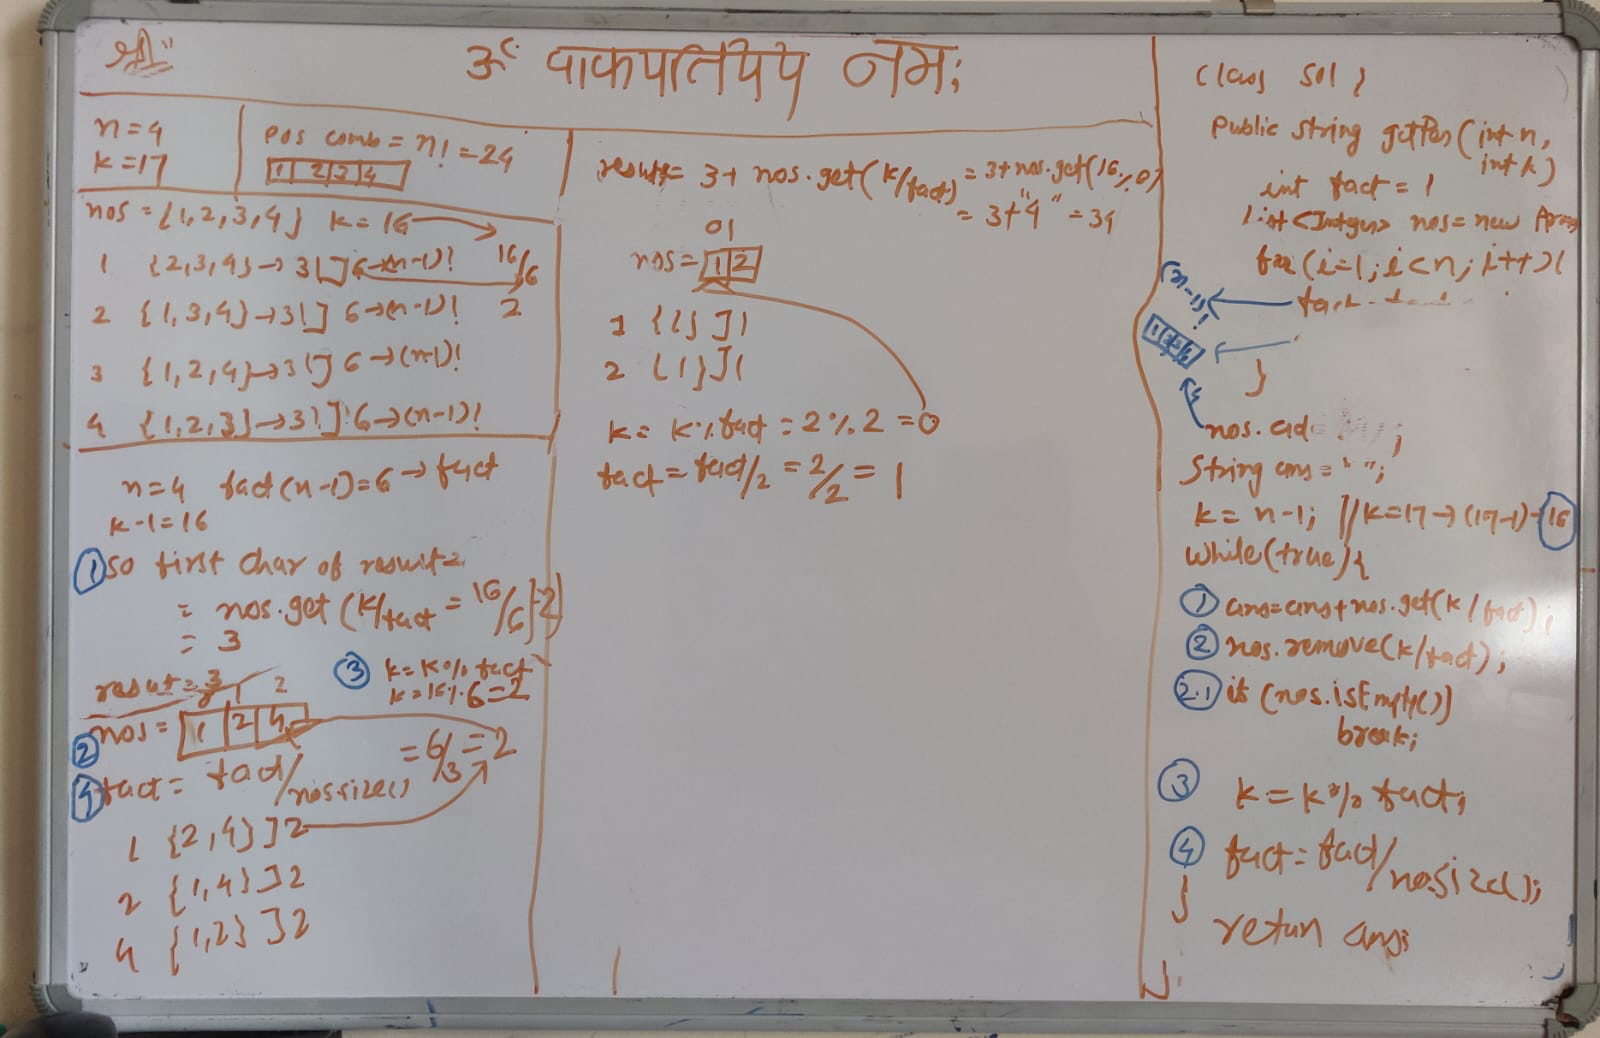 श्रीः
ॐ वाकपतियये नमः
n=4
k=17
Pos comb = n! = 24
1 2 3 4
nos = {1,2,3,4} k=16
1 {2,3,4} → 3! ] 6 → (n-1)! 16/6
2 {1,3,4} → 3! ] 6 → (n-1)! 2
3 {1,2,4} → 3! ] 6 → (n-1)!
4 {1,2,3} → 3! ] 6 → (n-1)!
n=4 fact(n-1)=6 → fact
k-1=16
① so first char of result =
= nos.get (k/fact = 16/6 = 2)
= 3
result = 3
③ k = k % fact
k = 16 % 6 = 2
1 2
② nos = 1 2 4
④ fact = fact/nos.size() = 6/3 = 2
1 {2,4} ] 2
2 {1,4} ] 2
4 {1,2} ] 2
result = 3 + nos.get(k/fact) = 3 + nos.get(
= 3 + "4" = 34
0 1
nos = 1 2
1 {2} ] 1
2 {1} ] 1
k = k % fact = 2 % 2 = 0
fact = fact/2 = 2/2 = 1
class Sol {
Public String getPer (int n,
int k)
int fact = 1
List <Integer> nos = new Array
for (i=1; i<n; i++) {
(n-1)! ← fact
1 2 3 4 ←
}
nos. ad ;
String ans = " ";
k = n-1; // k=17 → (17-1) → 16
while(true) {
① ans = ans + nos.get(k/fact);
② nos.remove(k/fact);
2.1 if (nos.isEmpty())
break;
③ k = k % fact;
④ fact = fact/nosize();
}
retun ans;
}